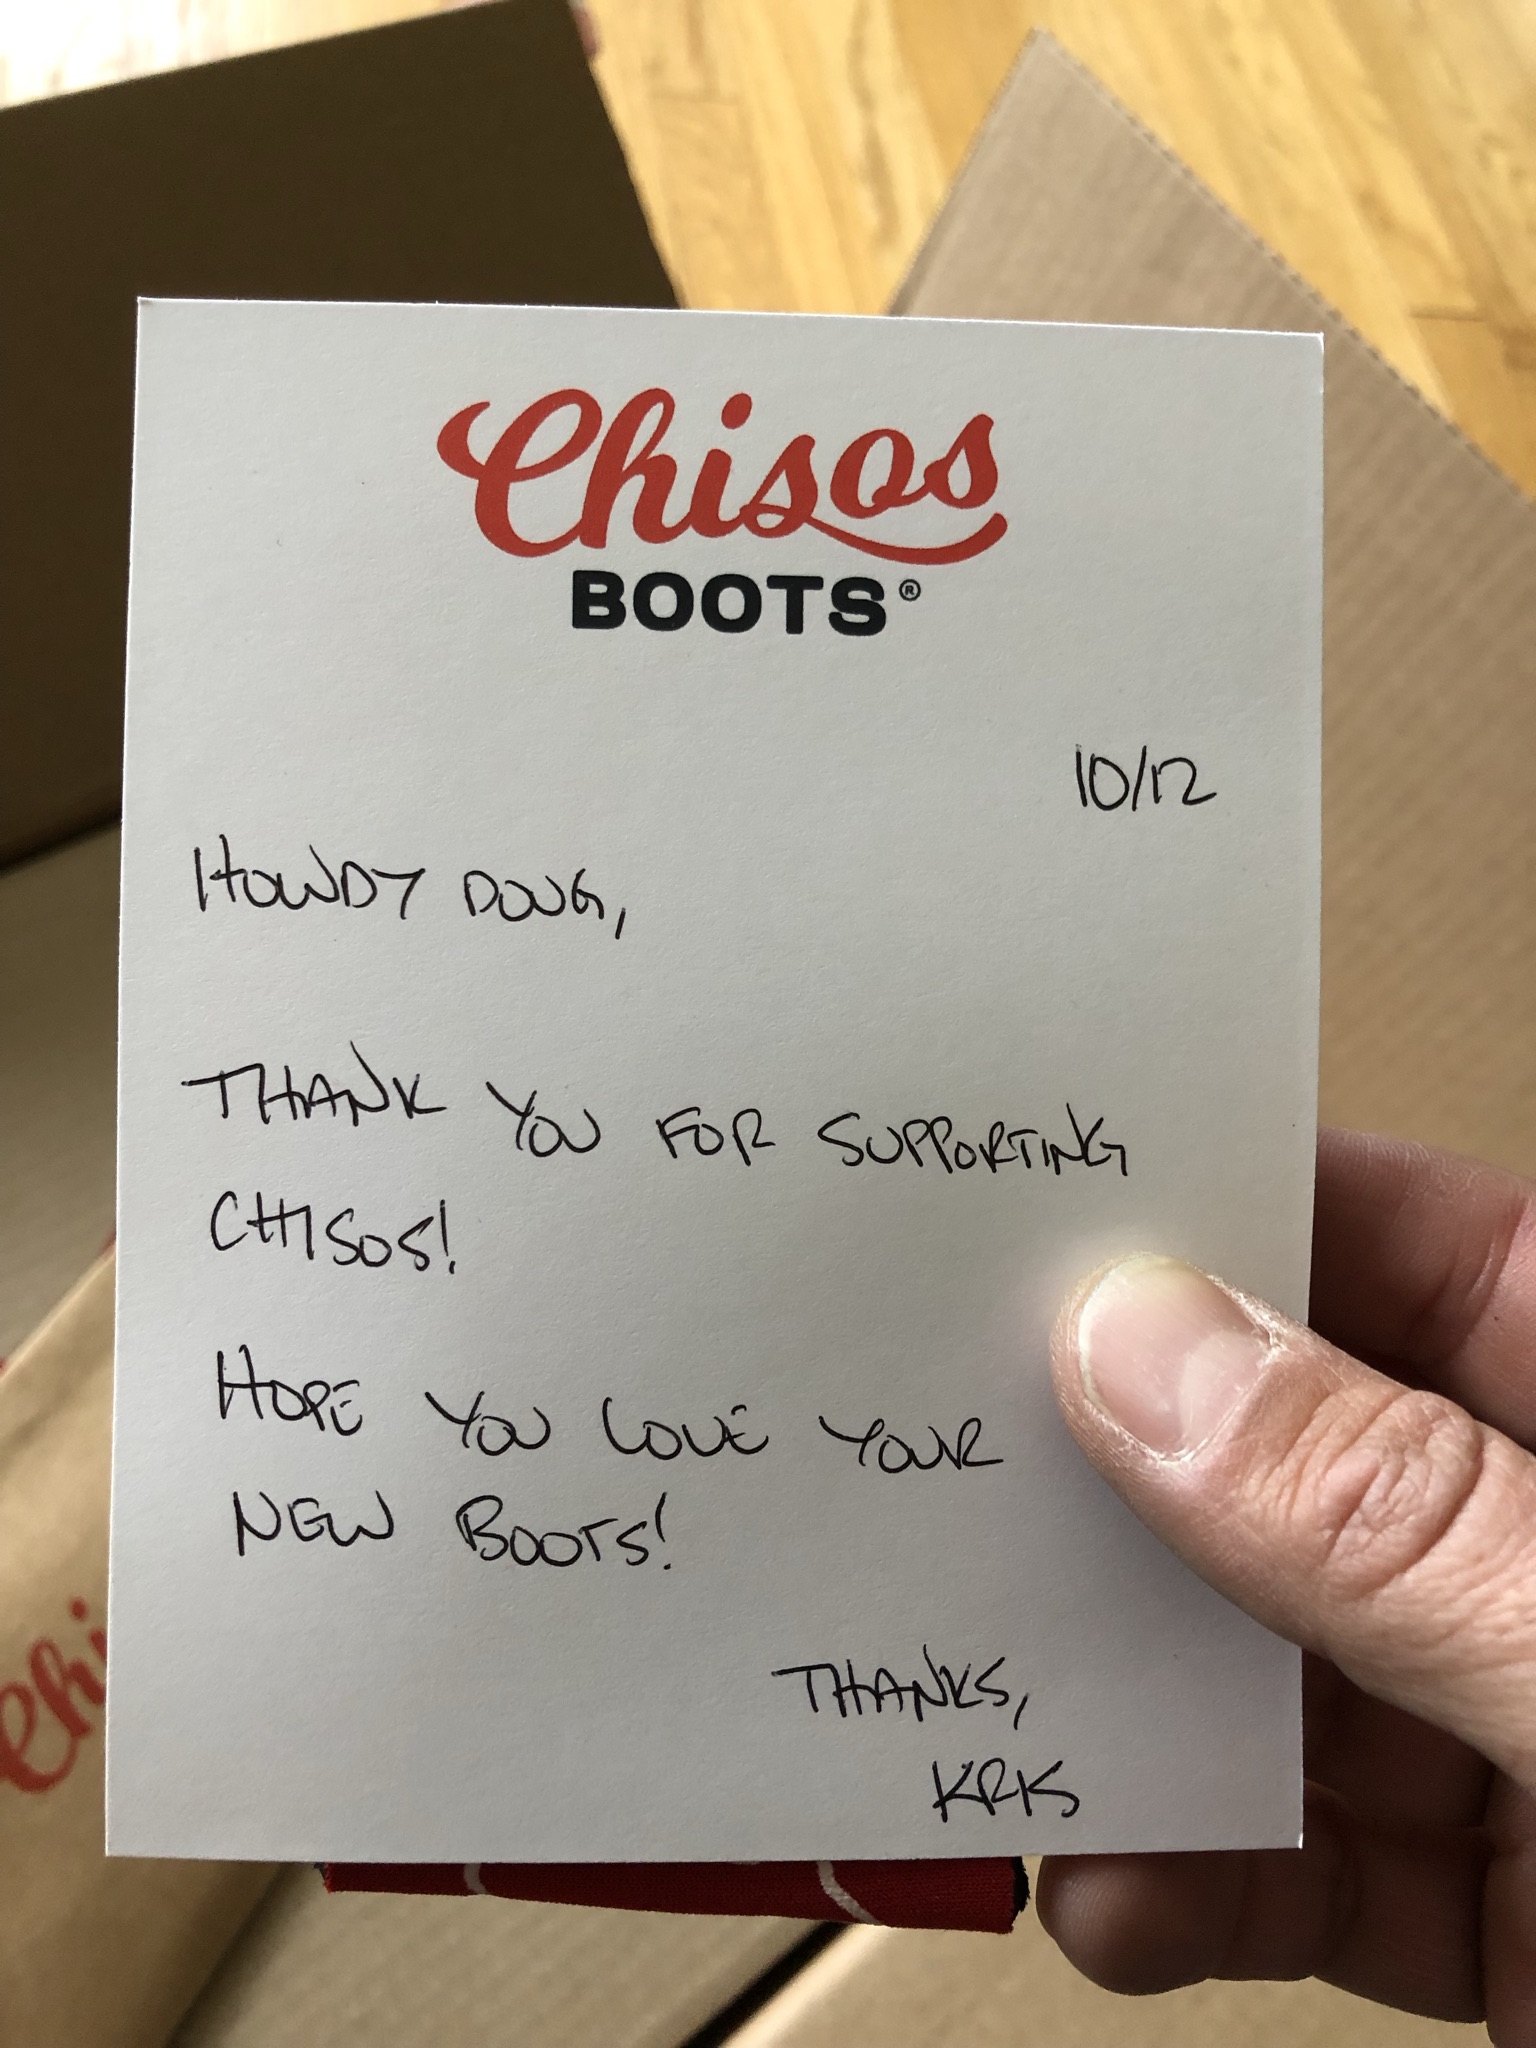 Chisos
BOOTS®
10/12
HOWDY DOUG,
THANK YOU FOR SUPPORTING
CHISOS!
HOPE YOU LOVE YOUR
NEW BOOTS!
THANKS,
KRIS
Chi